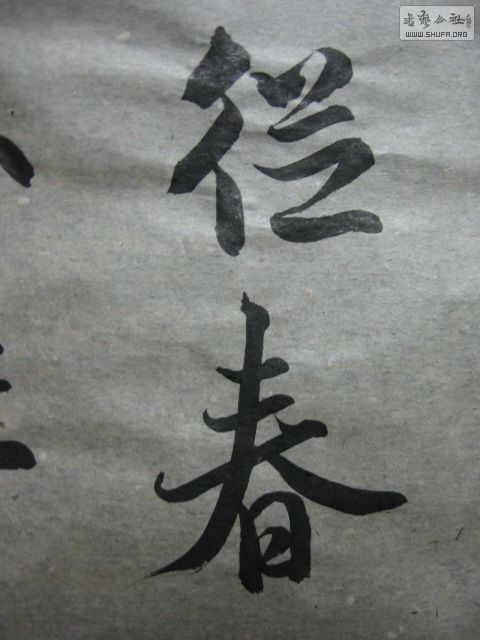 從春
書藝公社
WWW.SHUFA.ORG